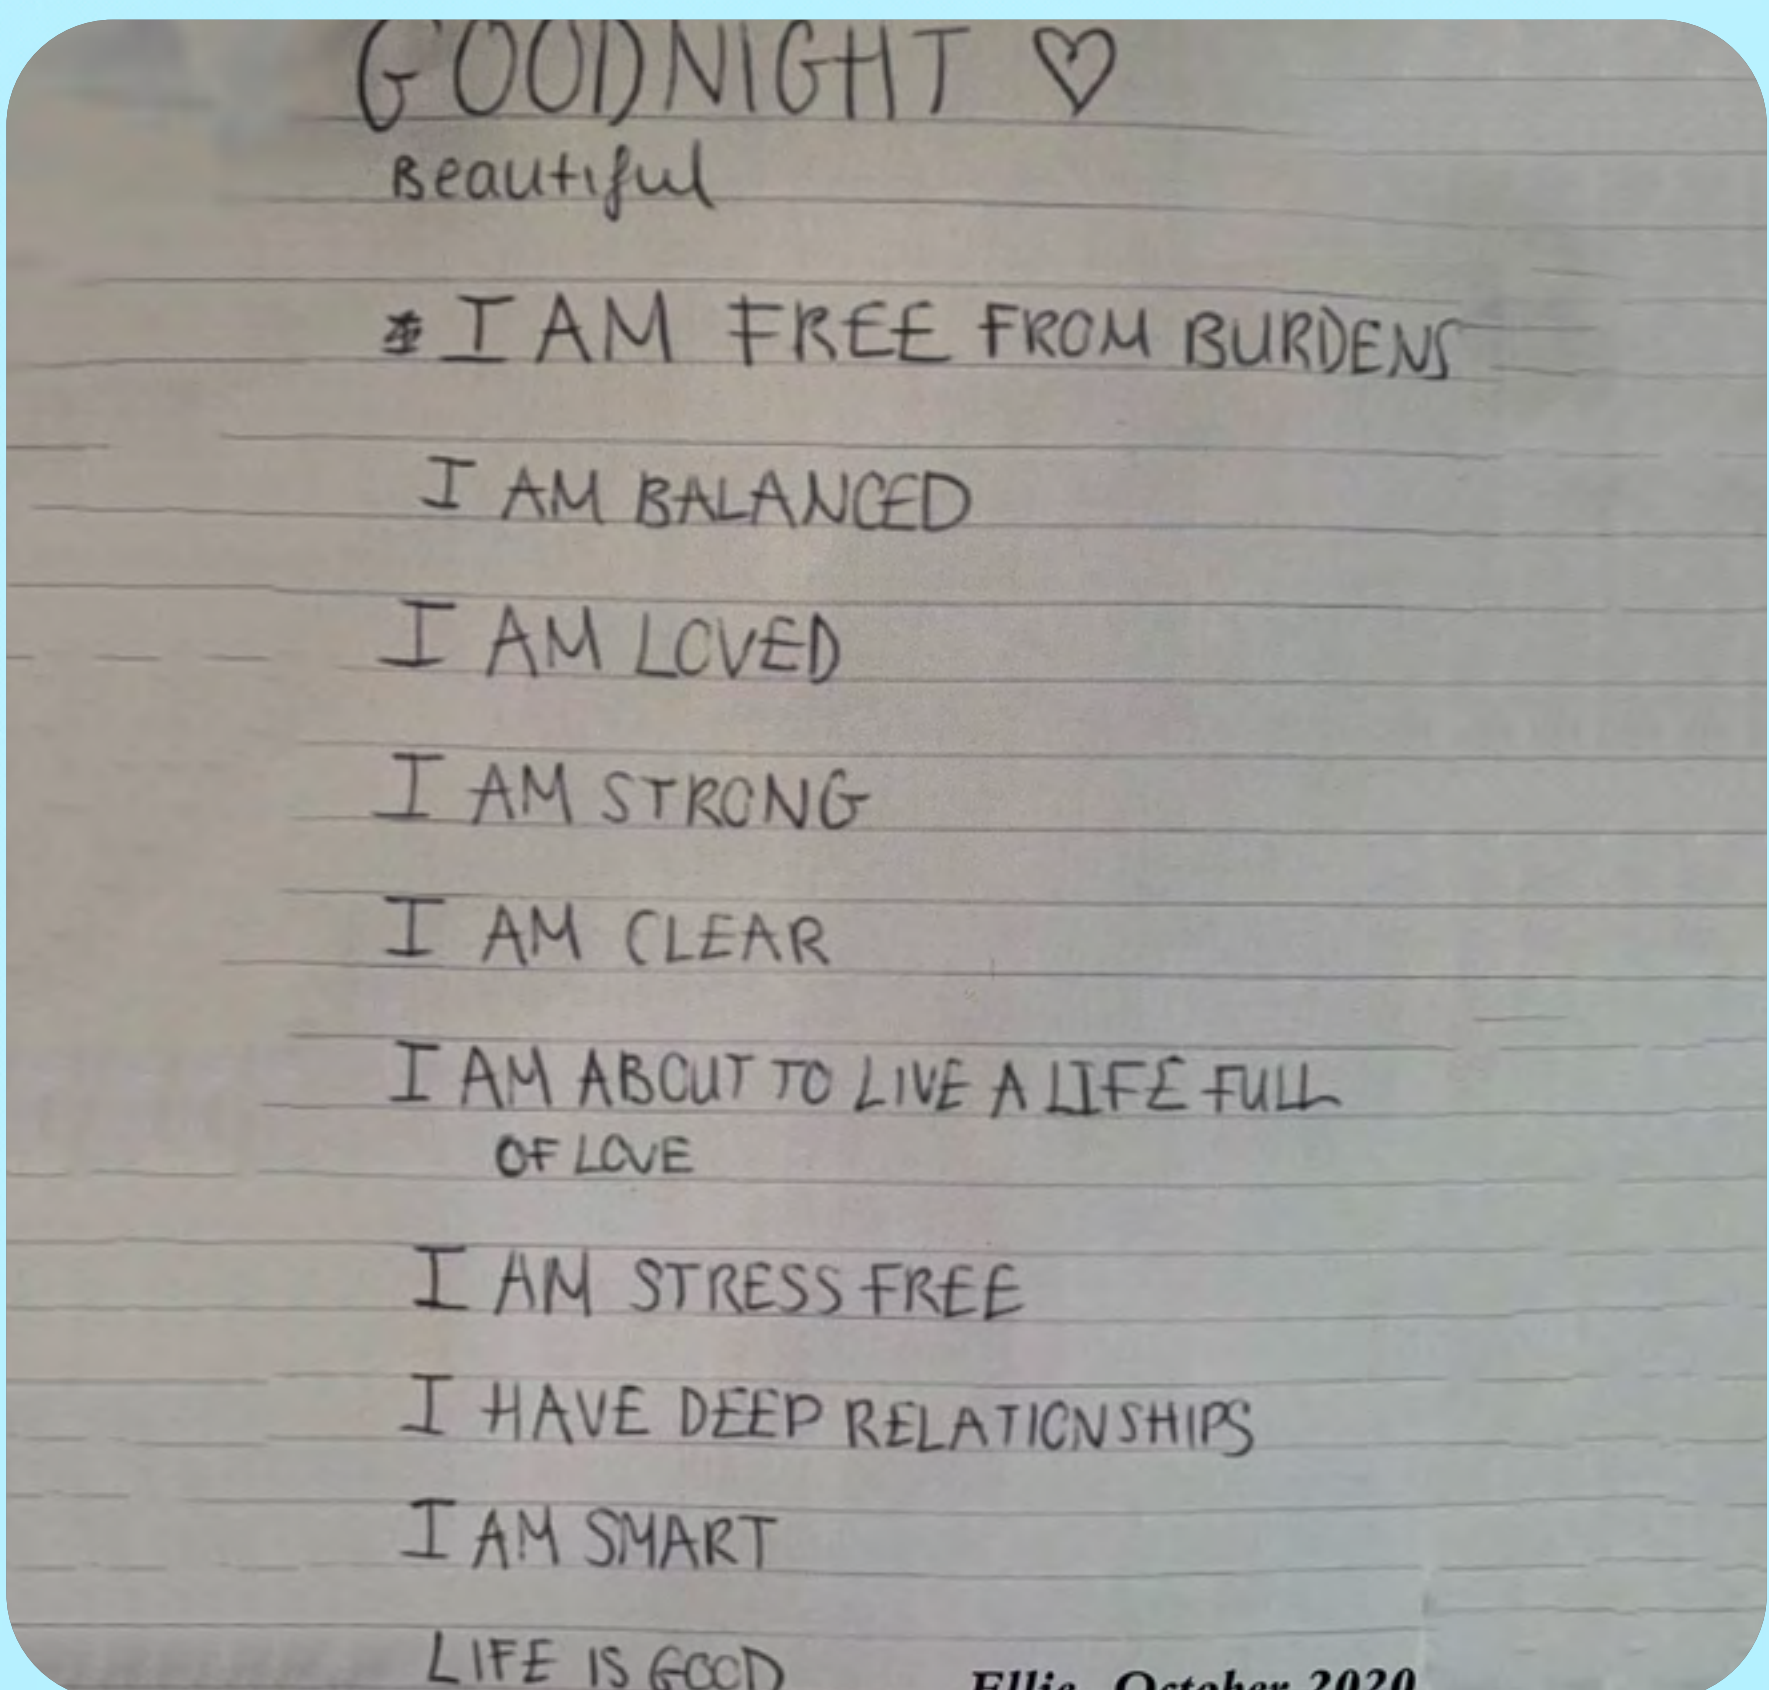 GOODNIGHT ♡
Beautiful
* I AM FREE FROM BURDENS
I AM BALANCED
I AM LOVED
I AM STRONG
I AM CLEAR
I AM ABOUT TO LIVE A LIFE FULL
OF LOVE
I AM STRESS FREE
I HAVE DEEP RELATIONSHIPS
I AM SMART
LIFE IS GOOD
Ellie, October 2020